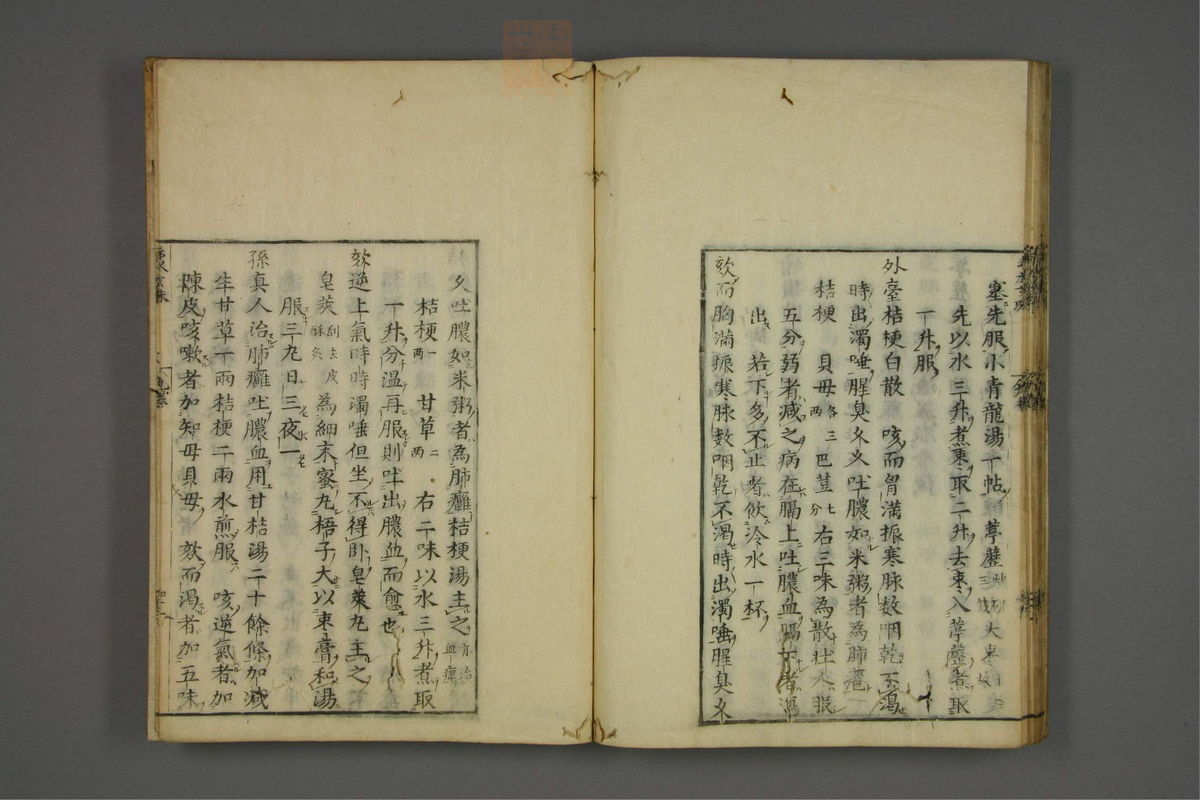 塞先服小青龍湯一帖葶藶
先以水三升煮棗取二升去棗入葶藶煮取
一升服
外臺桔梗白散咳而胷滿振寒脉数咽乾不渴
時出濁唾腥臭久久吐膿如米粥者為肺癰
桔梗 貝母各三兩 巴荳七分 右三味為散壮人服
五分弱者减之病在膈上吐膿血膈下者瀉
出 若下多不止者飲冷水一杯
欬而胸滿振寒脉数咽乾不渴時出濁唾腥臭久
久吐膿如米粥者為肺癰桔梗湯主之亦治血痺
桔梗一兩 甘草二兩 右二味以水三升煮取
一升分温再服則吐出膿血而愈也
欬逆上氣時時濁唾但坐不得卧皂莢丸主之
皂莢刮去皮酥炙 為細末蜜丸梧子大以棗膏和湯
服三丸日三夜一
孫真人治肺癰吐膿血用甘桔湯二十餘條加减
生甘草一兩桔梗二兩水煎服 咳逆氣者加
陳皮咳嗽者加知母貝母 欬而渴者加五味